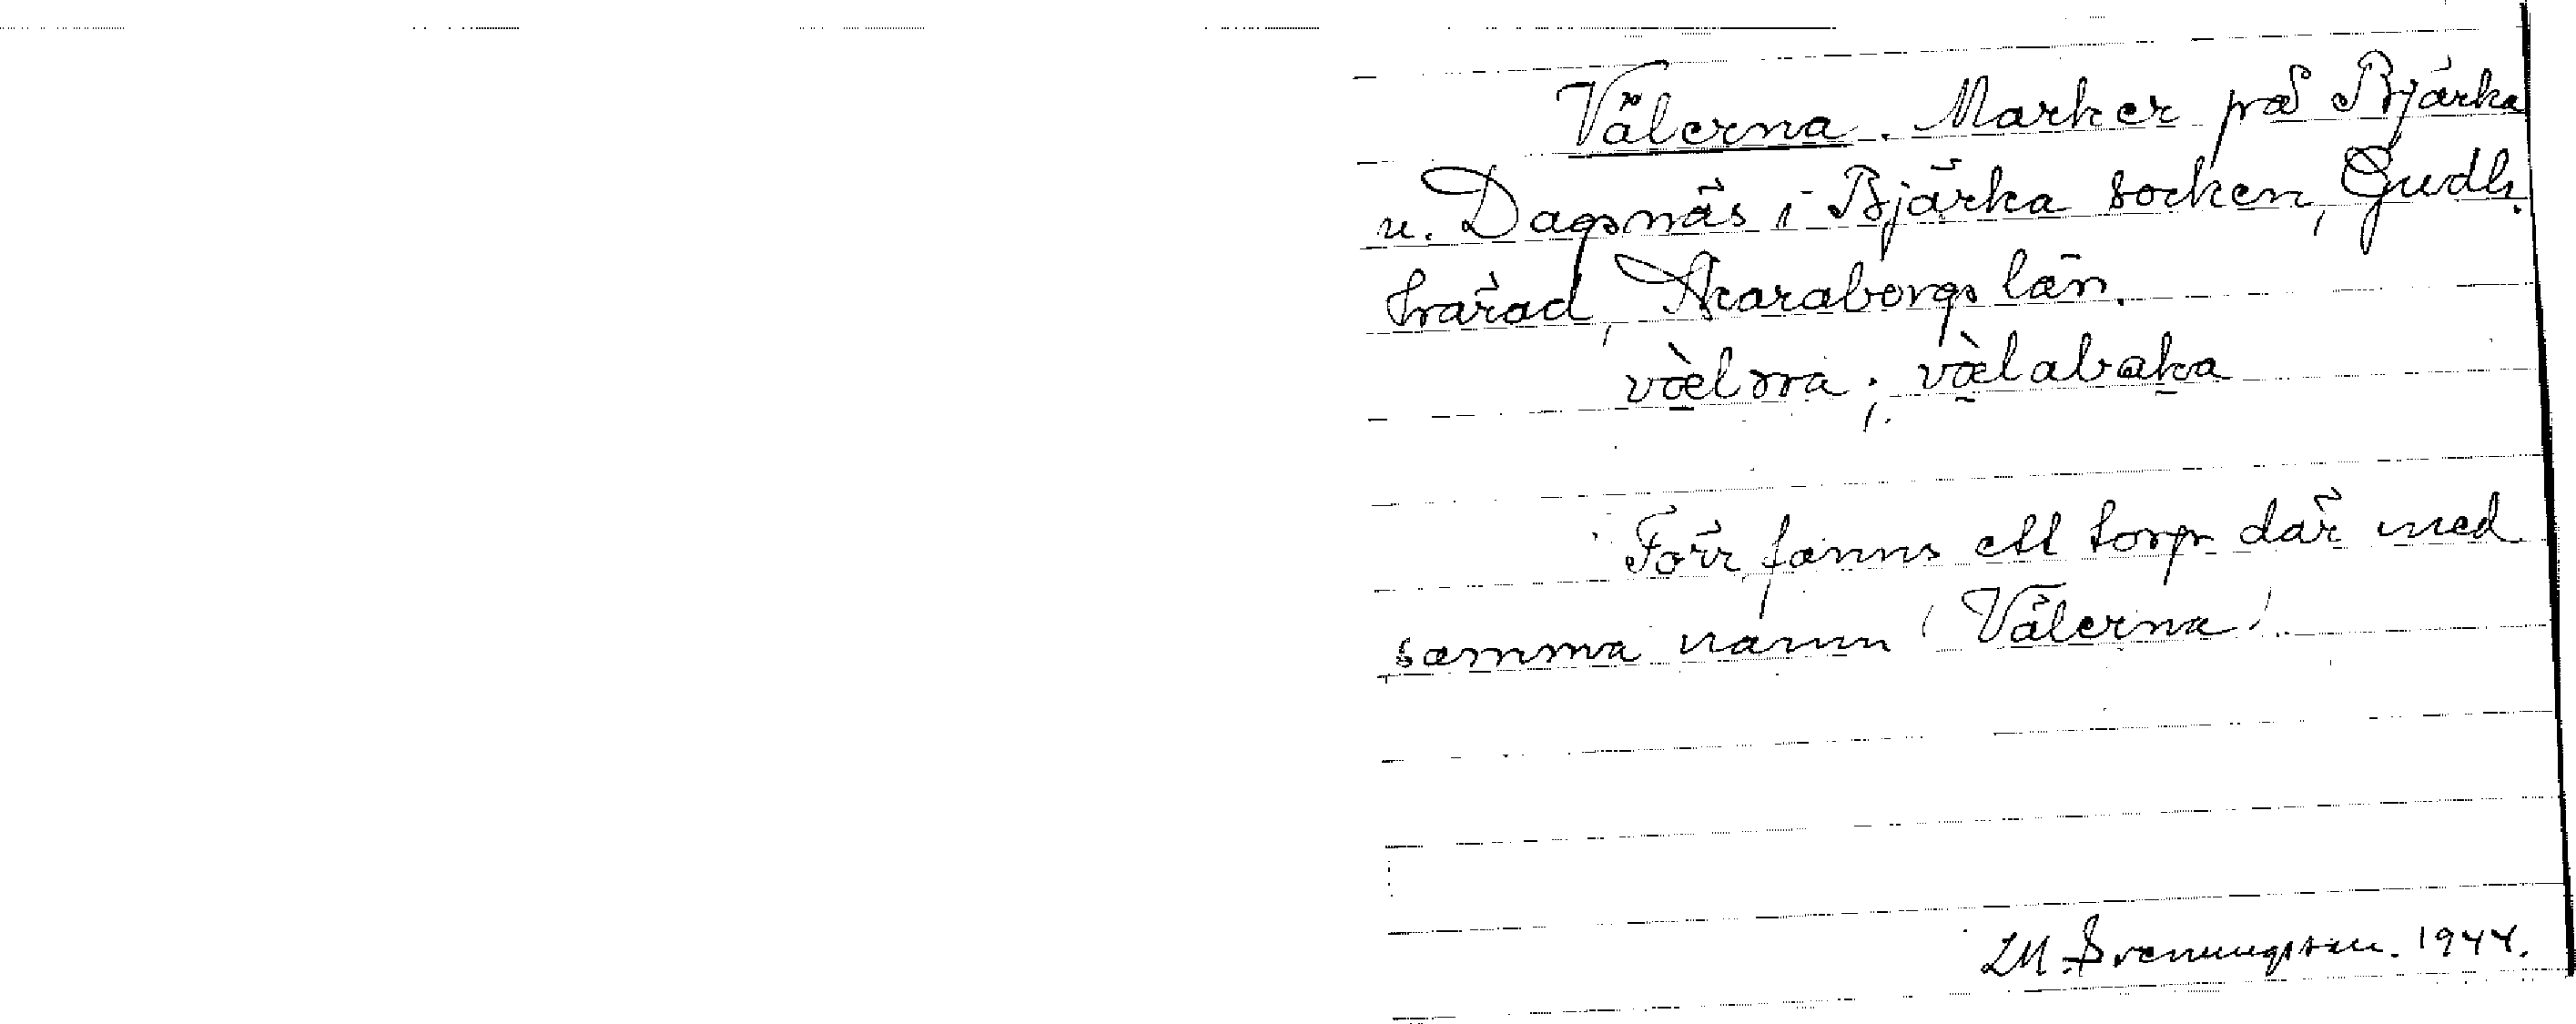 Välerna. Marker på Bjärka
u. Dagsnäs i Bjärka socken, Gudh.
härad, Skaraborgs län.
vælṇa; vælabaka
Förr fanns ett torp där med
samma namn 'Välerna'.
LM. Svenungsson. 1944.